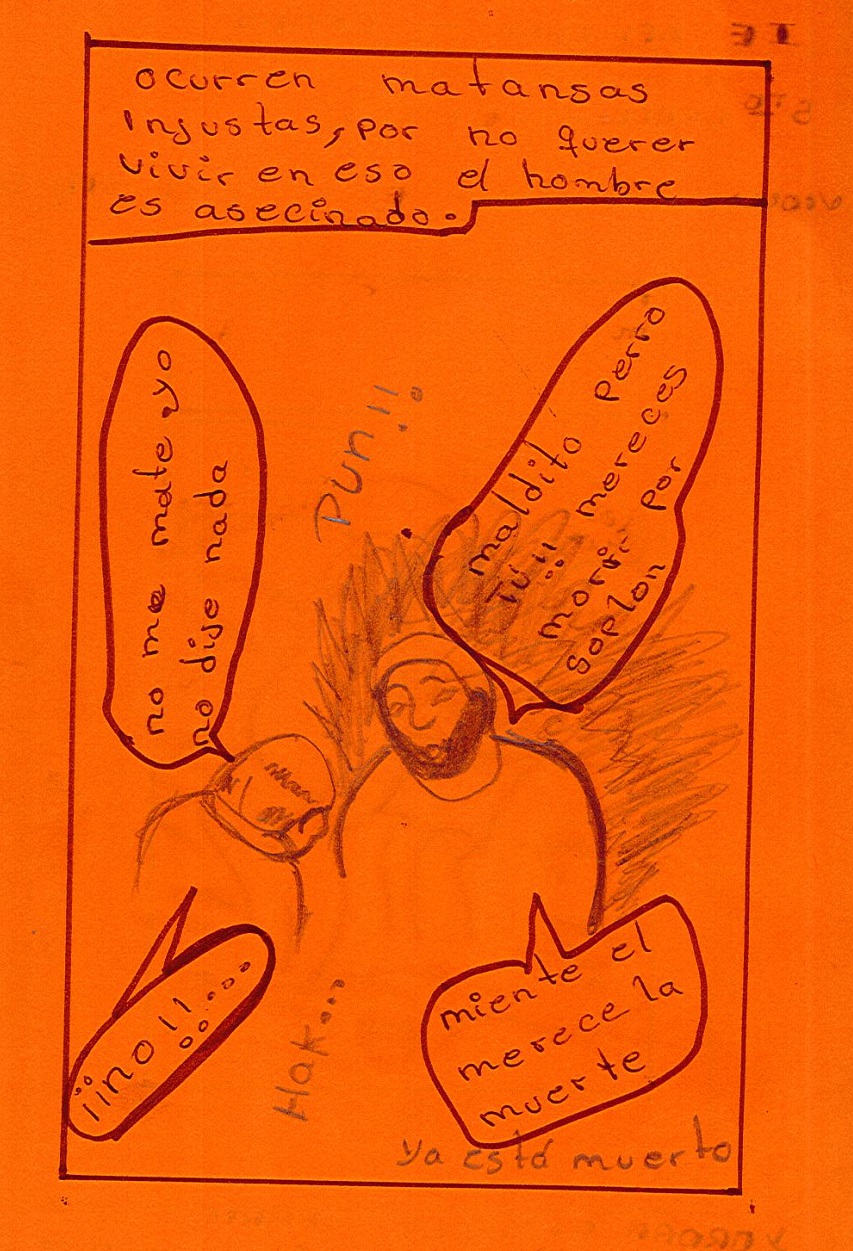 ocurren matansas
injustas, por no querer
vivir en eso el hombre
es asecinado.
no me mate yo
no dije nada
Pun!!
maldito perro
TÚ!! mereces
morir por
soplon
¡¡no!!...
Hak...
miente el
merece la
muerte
ya está muerto